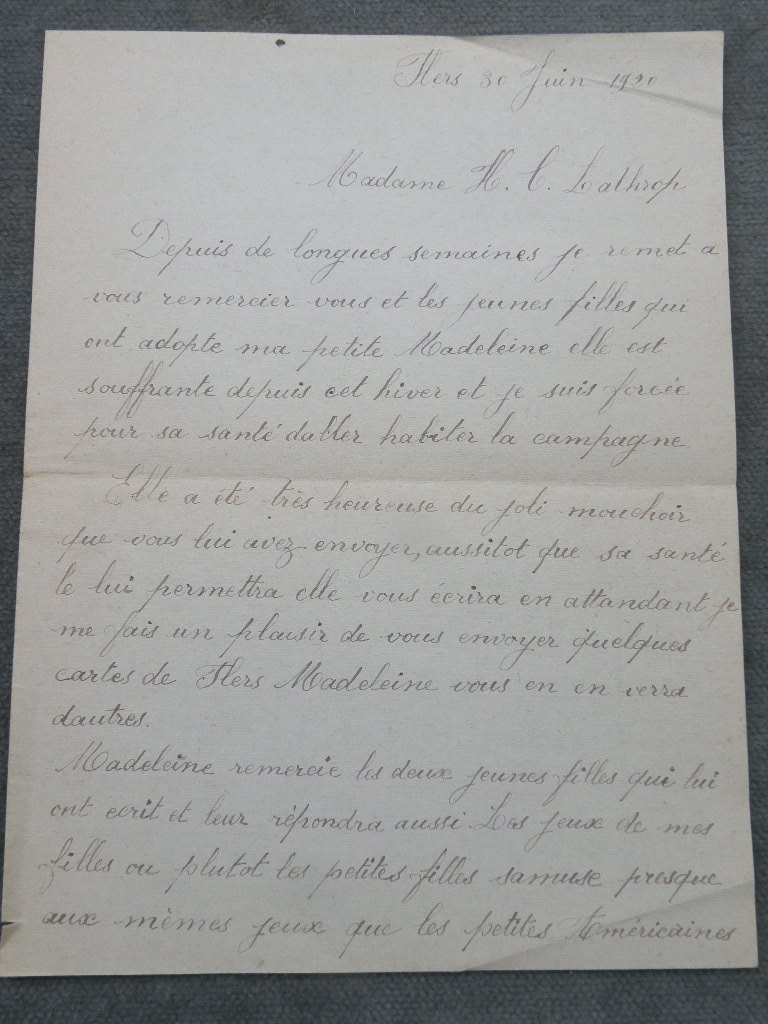 Flers 30 Juin 1920
Madame H. C. Lathrop
Depuis de longues semaines je remet a
vous remercier vous et les jeunes filles qui
ont adopte ma petite Madeleine elle est
souffrante depuis cet hiver et je suis forcée
pour sa santé daller habiter la campagne
Elle a été très heureuse du joli mouchoir
que vous lui avez envoyer, aussitot que sa santé
le lui permettra elle vous écrira en attandant je
me fais un plaisir de vous envoyer quelques
cartes de Flers Madeleine vous en en verra
dautres.
Madeleine remercie les deux jeunes filles qui lui
ont ecrit et leur répondra aussi. Les jeux de mes
filles ou plutot les petites filles samuse presque
aux mèmes jeux que les petites Américaines